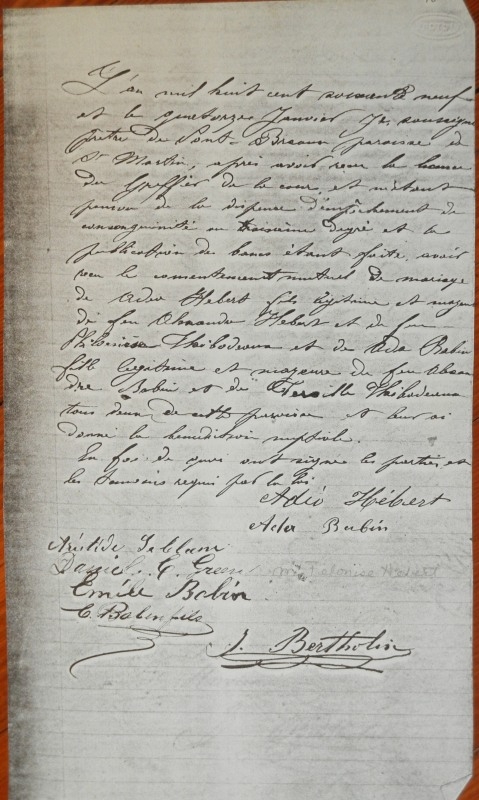 L'an mil huit cent soixante neuf
et le quatorze Janvier Je, soussigné
prêtre de Pont- Breaux, paroisse de
St Martin, après avoir reçu la licence
du Greffier de la cour, et m'étant
pourvu de la dispense d'empêchement de
consanguinité au troisième degré et la
publication de bans étant faite, avoir
reçu le consentement mutuel de mariage
de Adéo Hebert fils légitime et majeur
de feu Hebert et de feu
Thibodeaux et de Ada Babin
fille légitime et majeure de feu
dre Babin et de Thibodeaux
tous deux de cette paroisse et leur ai
donné la bénédiction nuptiale.
En foi de quoi ont signé les parties et
les témoins requis par la loi
Adéo Hébert
Ada Babin
Aristide Leblanc
Daniel G. Green
Emile Babin
C. Babin fils
J. Bertholin